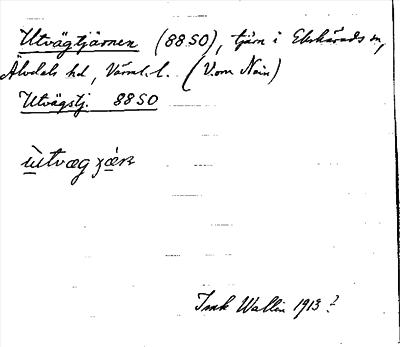 Utvägtjärnen (88SO), tjärn i Ekshärads sn,
Älvdals hd, Värml. l. (V.om Nain)
Utvägstj. 88SO
ùtvæg
Insk Wallin 1913?